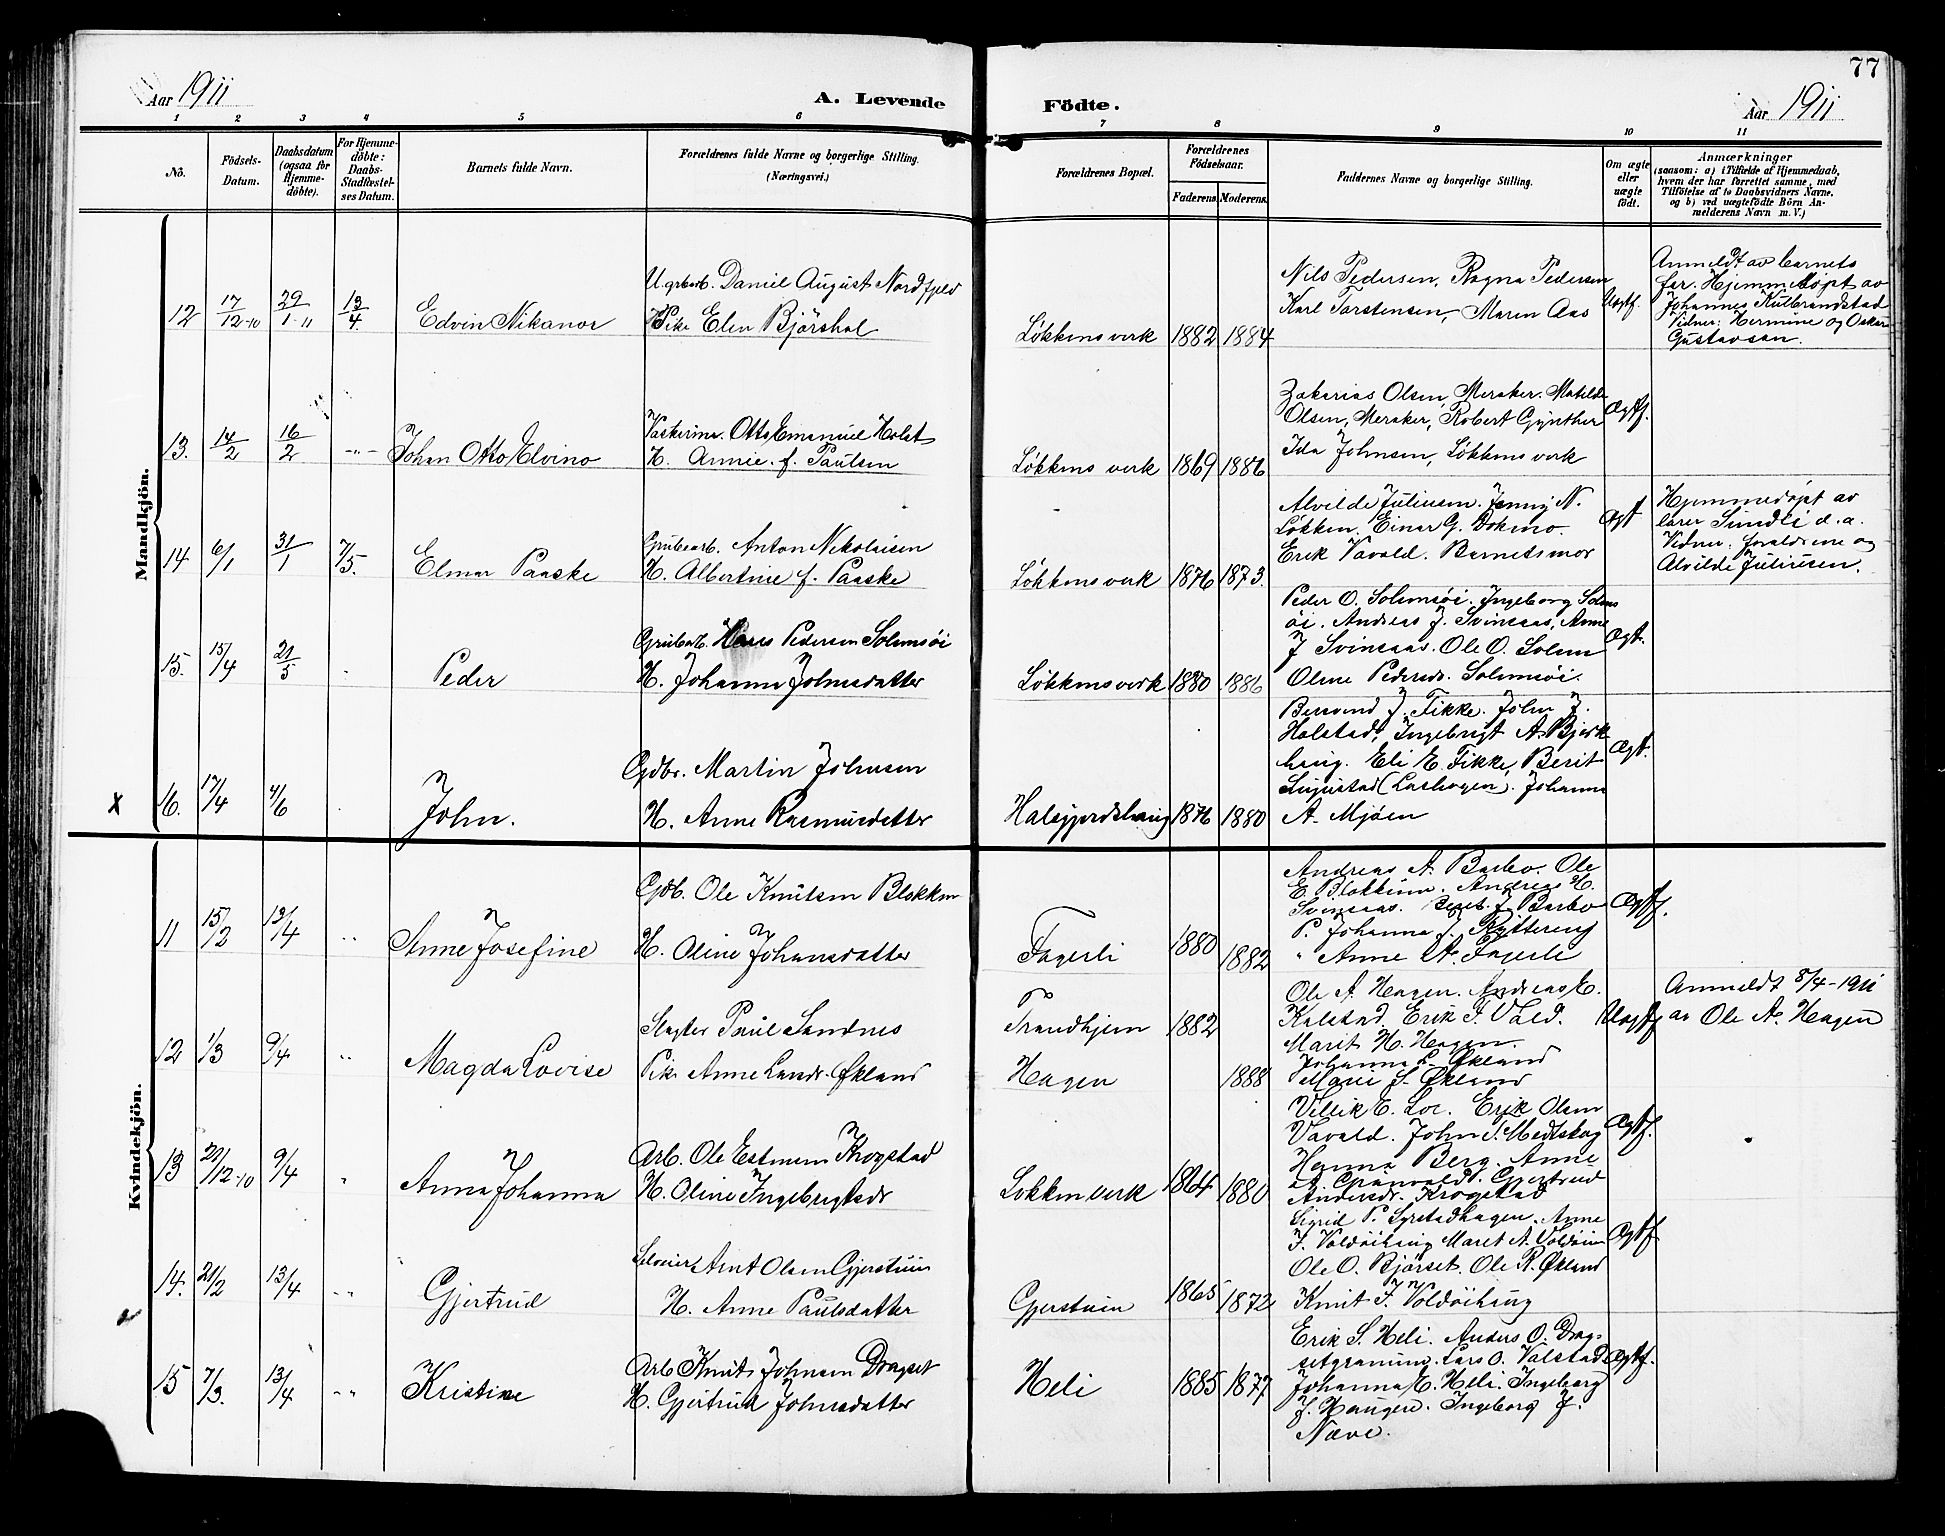 77
Aar 1911
A. Levende
Födte.
Aar 1911
1 2 3 4 5 6 7 8 9 10 11
No.
Födsels-
Datum.
Daabsdatum
(ogsaa for
Hjemme-
döbte).
For Hjemme-
döbte:
Daabs-
Stadfæstel-
ses Datum.
Barnets fulde Navn.
Forældrenes fulde Navne og borgerlige Stilling.
(Næringsvei.)
Forældrenes Bopæl.
Forældrenes
Födselsaar.
Faderens. Moderens.
Faddernes Navne og borgerlige Stilling.
Om ægte
eller
uægte
födt.
Anmærkninger
(saasom: a) i Tilfælde af Hjemmedaab,
hvem der har forrettet samme, med
Tilföielse af to Daabsvidners Navne,
og b) ved uægtefödte Börn An-
melderens Navn m. V.)
Mandkjön.
12 17/12-10 29/1-11 13/4 Edvin Nikanor
Ugrbarb. Daniel August Nordfjeld
Pike Elen Bjørshol
Løkkens verk 1882 1884
Nils Pedersen, Ragna Pedersen
Karl Torstensen, Maren Aas
Uegtf.
Anmeldt av barnets
far. Hjemmedøpt av
Johannes Kulbrandstad
Vidner: Hermine og Oskar
Gustavsen.
13. 14/2 16/2 -"- Johan Otto Elvino
Otto Emanuel Holst
H. Annie f. Paulsen
Løkkens verk 1869 1886
Zakarias Olsen, Meraker. Matilde
Olsen, Meraker, Robert Gynther
Ida Johnsen, Løkkens verk
Ægtf.
14 6/1 31/1 7/5. Elmar Paaske
Grubearb. Anton Nikolaisen
H. Albertine f. Paaske
Løkkens verk 1876 1873.
Alvilde Juliusen. Jenny N.
Løkken, Einar G. Dokmo.
Erik Vavald. Barnets mor
Ægt
Hjemmedøpt av
lærer Sundli d.a.
Vidner: forældrene og
Alvilde Juliusen.
15. 15/4 21/5 Peder
Grubarb. Hans Pedersen Solemsøi
H. Johanna Johnsdatter
Løkkens verk 1880 1886
Peder O. Solemsøi. Ingeborg Solems
øi. Andreas J. Svinsaas, Anne
J Svinsaas. Ole O. Solem
Olene Pedersdr. Solemsøi.
Ægt.
x 16. 17/4 4/6 John.
Gdbr. Martin Johnsen
H. Anne Rasmusdatter
Halsgjerdshaug 1876 1880
Bersvend J. Fikke. John J.
Holstad, Ingebrigt A. Bjerk
haug. Eli E. Fikke, Berit
Johanna
A. Mjøen
Ægt.
Kvindekjön.
11 15/2 13/4 " Anne Josefine
Gdb. Ole Knutsen Blokkum
H. Oline Johansdatter
Fagerli 1880 1882
Andreas A. Barbo. Ole
E. Blokkum. Andreas H.
Svinsaas. Beret J Barbo
P. Johanna J. Ryttereng
" Anne A. Fagerli
Ægtf.
12 1/3 9/4 " Magda Lovise
Slagter Paul Sandnes
Pike Anne Larsdr. Økland
Trondhjem 1882
Hagen 1888
Ole A. Hagen. Andreas E.
Kalstad. Erik F. Vold.
Maret H. Hagen.
Johanna L. Økland
Marie S. Økland
Uegtf
Anmeldt 8/4-1911
av Ole A. Hagen
13 21/12-10 9/4 " Anna Johanna
Arb. Ole Estensen Krogstad
H. Oline Ingebrigtsdr
Løkken verk 1864 1880
Villik E. Lo. Erik Olsen
Vavald. John S. Medtskog
Hanna Berg. Anne
Gjertrud
Andersdr. Krogstad
Ægtf.
14. 21/2 13/4 -" Gjertrud
Selveier Arnt Olsen Gjerstuen
H. Anne Paulsdatter
Gjerstuen 1865 1872
Sigrid P. Syrstadhagen. Anne
F. Voldøihaug Maret A. Voldøien
Ole O. Bjørset. Ole R. Økland
Knut F. Voldøihaug
Ægtf
15 7/3. 13/4 -" Kristine
Arb Knut Johnsen Dragset
H. Gjertrud Johnsdatter
Heli 1885 1877
Erik S. Heli. Anders O. Drag-
setgrauum. Lars O. Valstad
Johanna E. Heli. Ingeborg
J. Haugen. Ingeborg J.
Næve.
Ægtf.